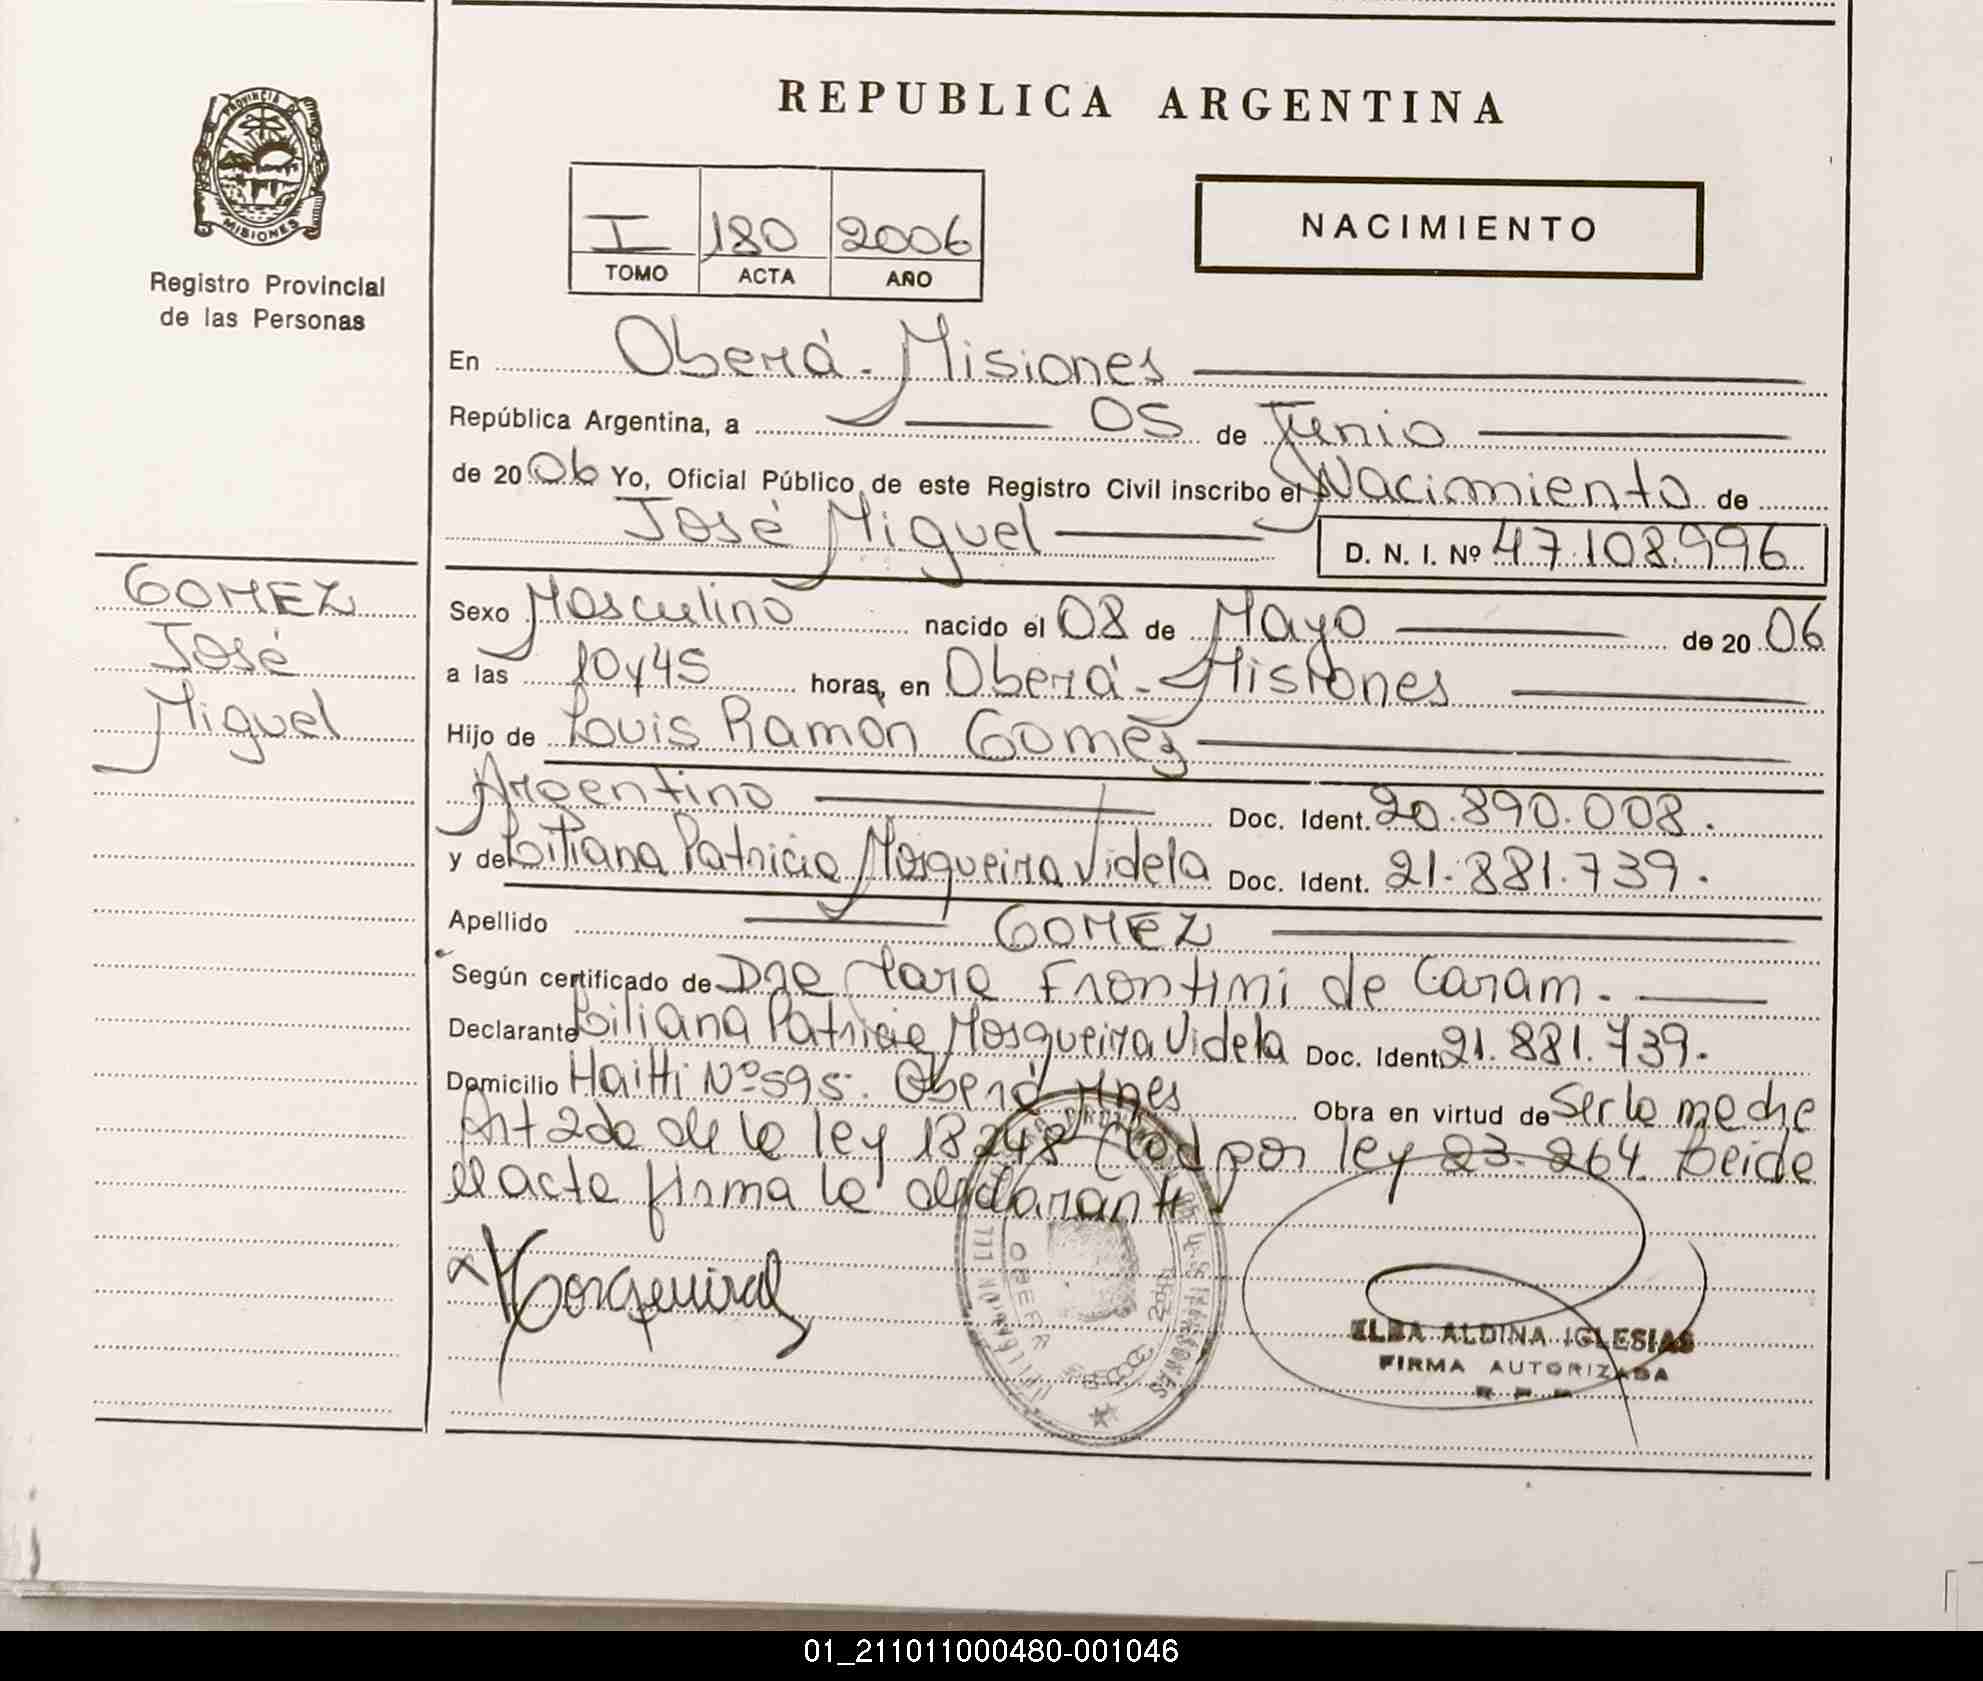 REPUBLICA ARGENTINA
PROVINCIA DE
MISIONES
Registro Provincial
de las Personas
I 180 2006
TOMO ACTA AÑO
NACIMIENTO
En Oberá - Misiones
República Argentina, a 05 de Junio
de 2006 Yo, Oficial Público de este Registro Civil inscribo el Nacimiento de
José Miguel D. N. I. Nº 47.108.996
GOMEZ
José
Miguel
Sexo Masculino nacido el 08 de Mayo de 2006
a las 10y45 horas, en Oberá - Misiones
Hijo de Louis Ramon Gomez
Argentino Doc. Ident. 20.890.008.
y de Liliana Patricia Mosqueira Videla Doc. Ident. 21.881.739.
Apellido GOMEZ
Según certificado de Dra Clara Frontini de Caram.
Declarante Liliana Patricia Mosqueira Videla Doc. Ident. 21.881.739.
Domicilio Haitti Nº 595. Oberá Mnes Obra en virtud de Ser la madre
Art 2do de la ley 18248 Mod por ley 23.264. Leida
el acta firma la declarante
ELBA ALDINA IGLESIAS
FIRMA AUTORIZADA
01_211011000480-001046